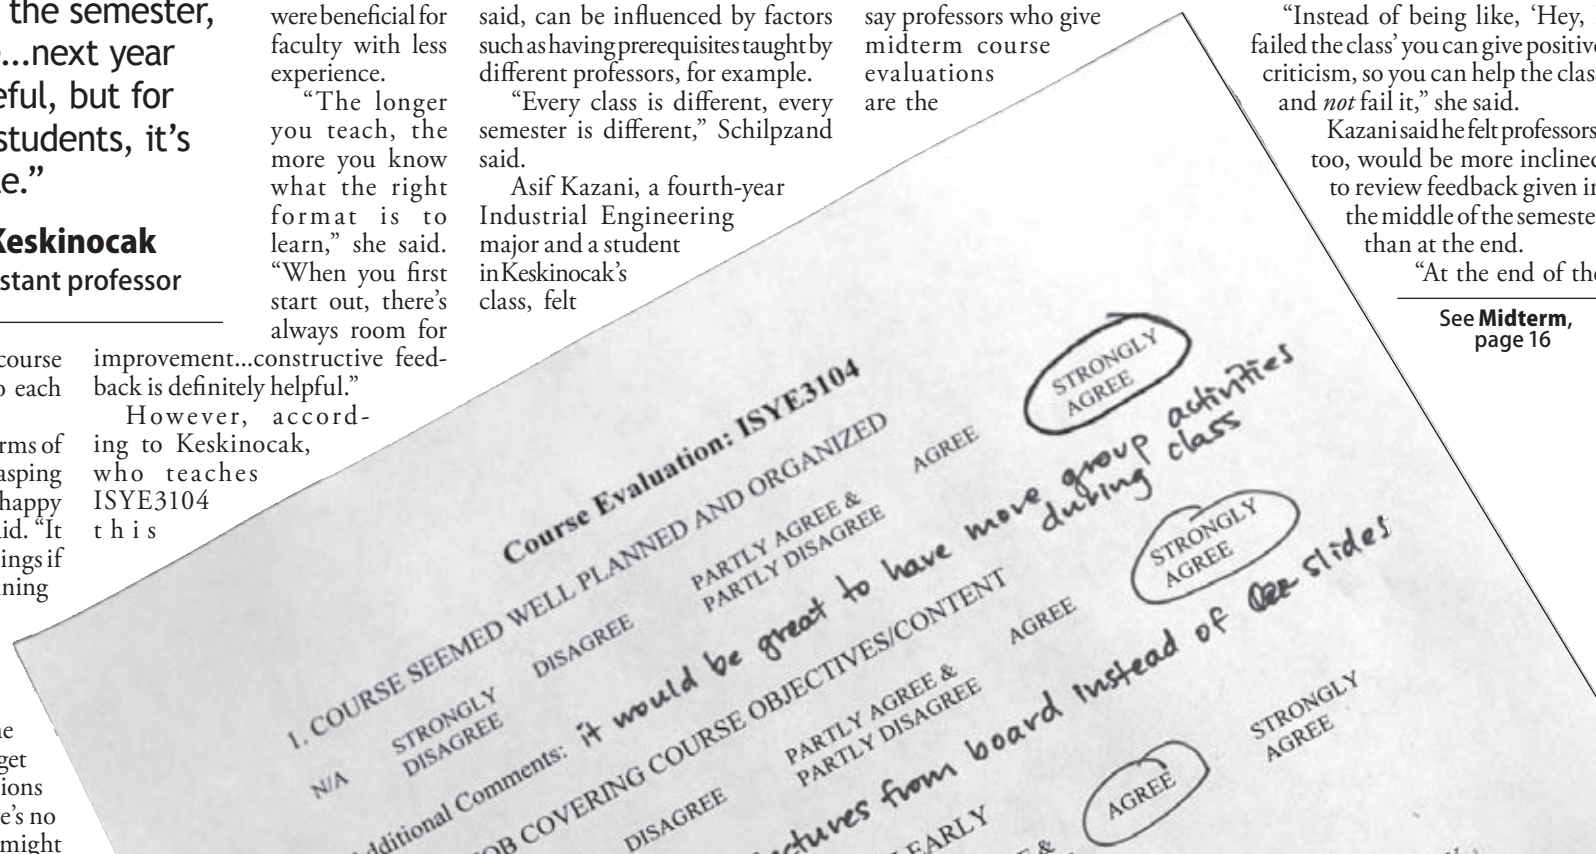 the semester,
...next year
but for
students, it's
Keskinocak
professor
course
each
of
happy
"It
if
get
no
might
were beneficial for
faculty with less
experience.
"The longer
you teach, the
more you know
what the right
format is to
learn," she said.
"When you first
start out, there's
always room for
improvement...constructive feed-
back is definitely helpful."
However, accord-
ing to Keskinocak,
who teaches
ISYE3104
this
said, can be influenced by factors
such as having prerequisites taught by
different professors, for example.
"Every class is different, every
semester is different," Schilpzand
said.
Asif Kazani, a fourth-year
Industrial Engineering
major and a student
in Keskinocak's
class, felt
say professors who give
midterm course
evaluations
are the
"Instead of being like, 'Hey,
failed the class' you can give positive
criticism, so you can help the class
and not fail it," she said.
Kazani said he felt professors,
too, would be more inclined
to review feedback given in
the middle of the semester
than at the end.
"At the end of the
See Midterm,
page 16
Course Evaluation: ISYE3104
1. COURSE SEEMED WELL PLANNED AND ORGANIZED
N/A
STRONGLY
DISAGREE
DISAGREE
PARTLY AGREE &
PARTLY DISAGREE
AGREE
STRONGLY
AGREE
Additional Comments: it would be great to have more group activities
during class
COVERING COURSE OBJECTIVES/CONTENT
DISAGREE
PARTLY AGREE &
PARTLY DISAGREE
AGREE
STRONGLY
AGREE
from board instead of slides
AGREE
STRONGLY
AGREE